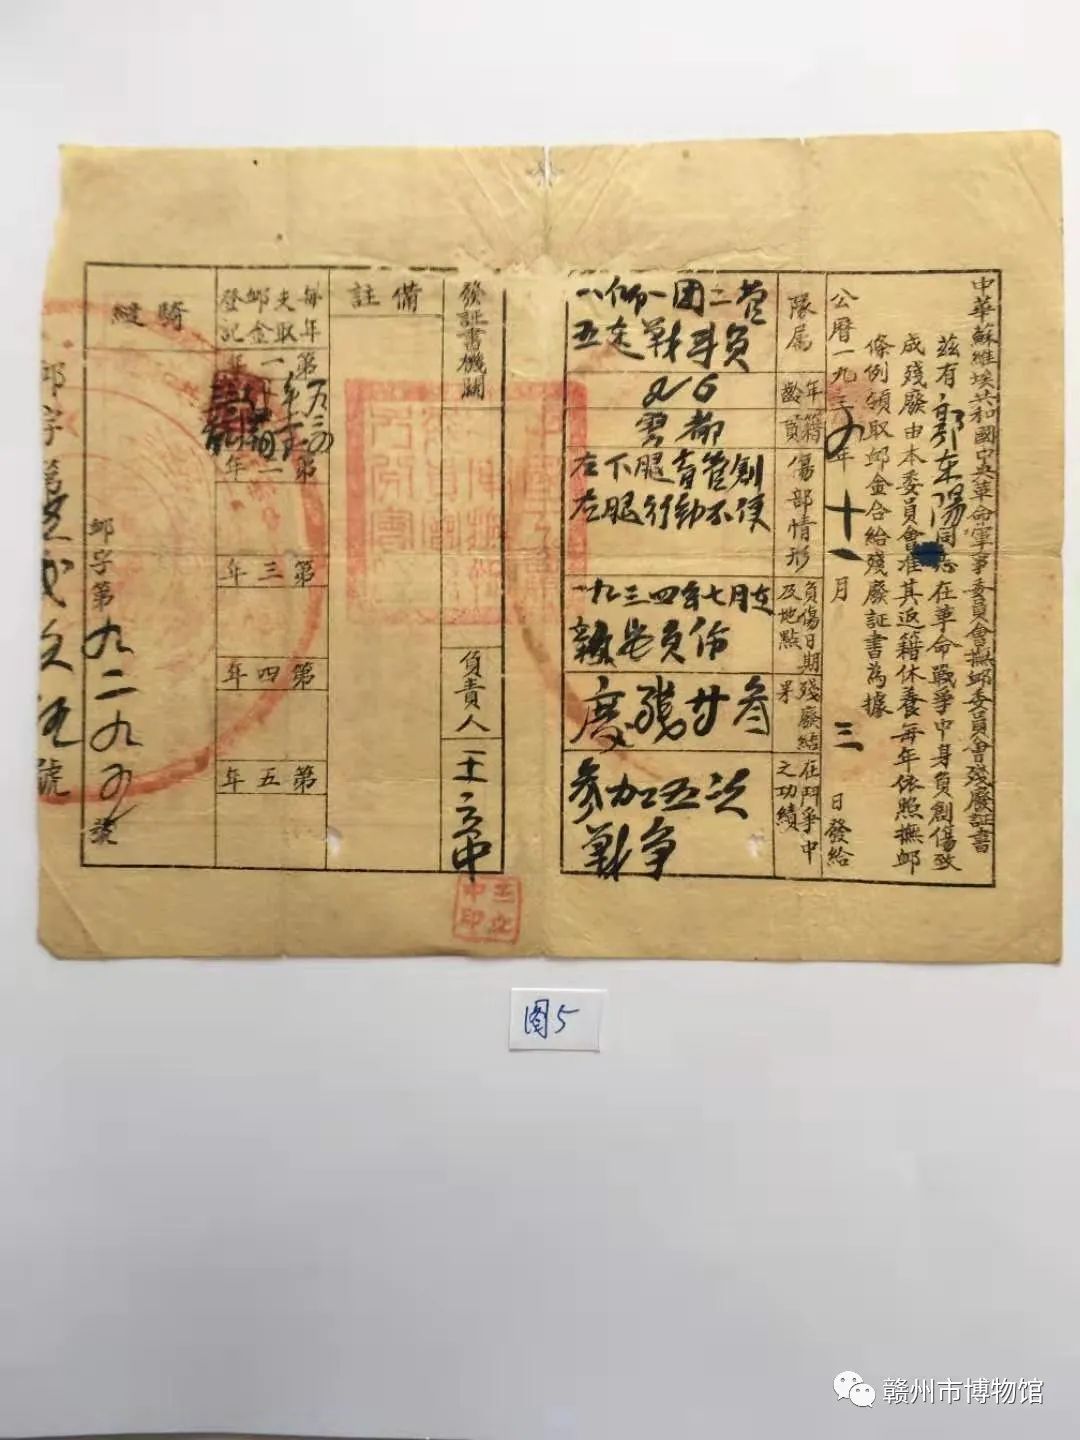 中華蘇維埃共和國中央革命軍事委員會撫邺委員會殘廢証書
茲有郭东陽同志在革命戰爭中身負創傷致
成殘廢由本委員會准其返籍休養每年依照撫邺
條例領取邺金合給殘廢証書為據
公曆一九三四年十一月三日發給
隊属
八師一团二营
五連战斗员
年齡
26
籍貫
雩都
傷部情形
左下腿骨管創
左腿行動不便
負傷日期及地點
一九三四年七月在
負傷
殘廢結果
在鬥爭中之功績
参加五次
战争
發証書機關
負責人
王立中
王立中印
備註
每年支取邺金登記
第一年
第二年
第三年
第四年
第五年
騎縫
邺字第九二九四號
图5
赣州市博物馆